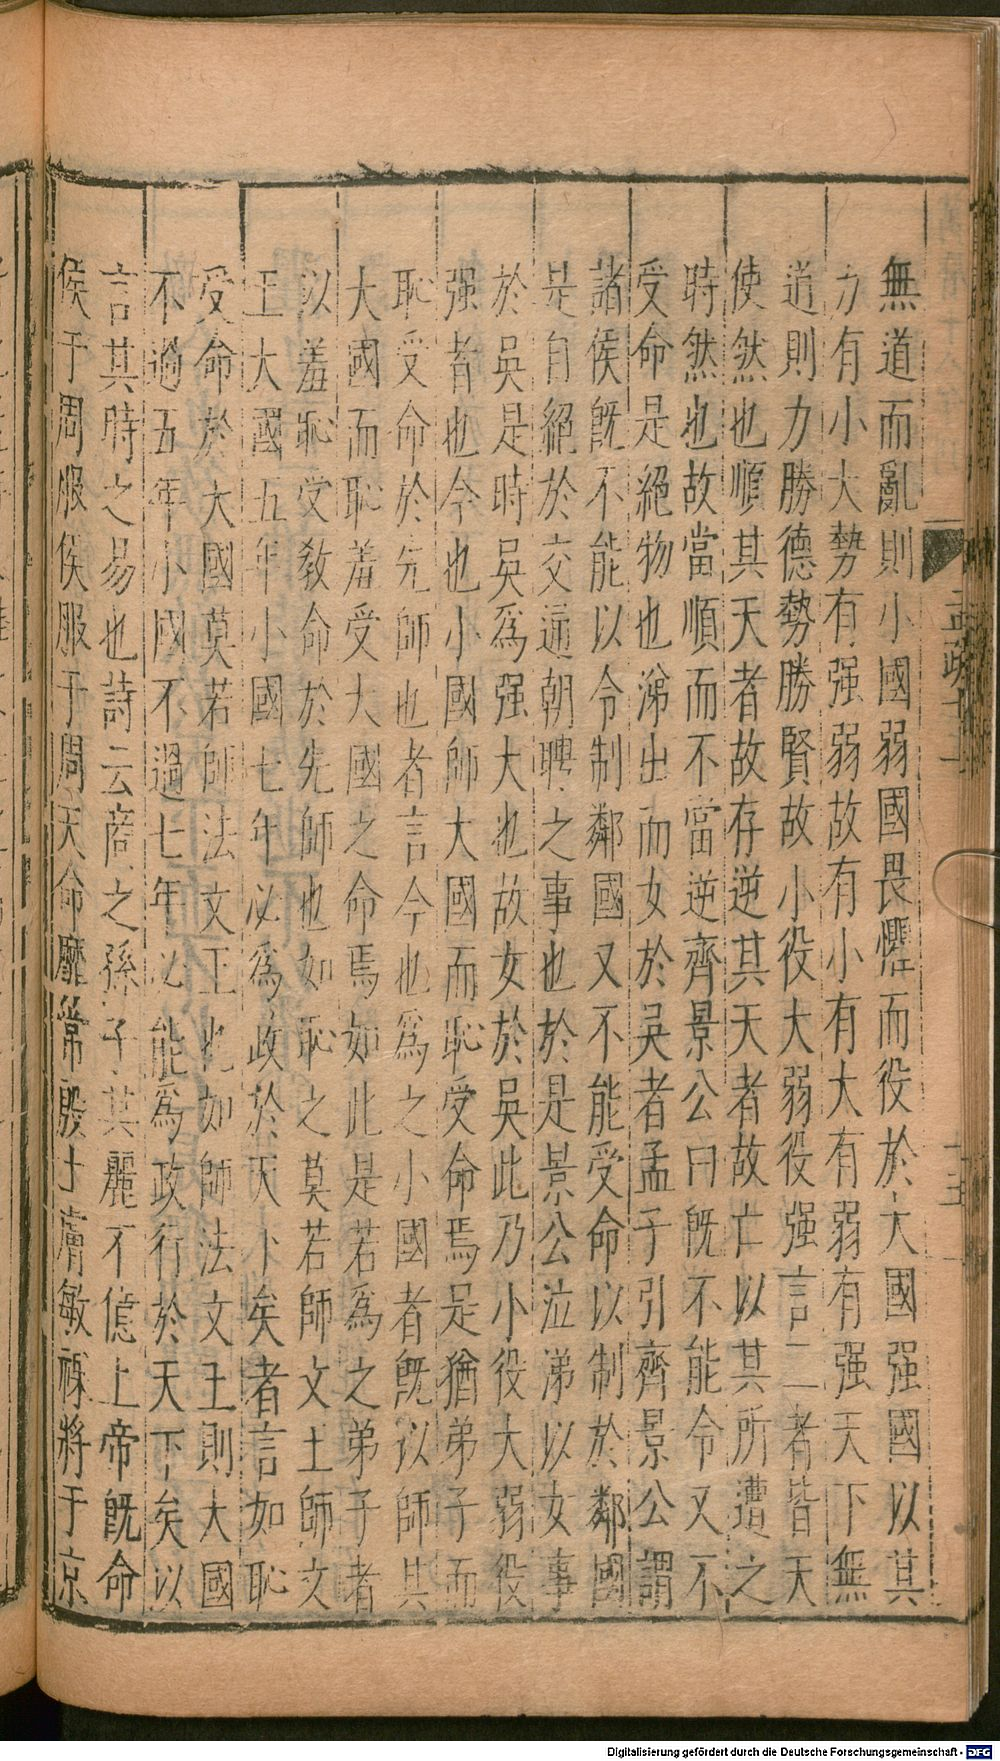 無道而亂則小國弱國畏懼而役於大國强國以其
力有小大勢有强弱故有小有大有弱有强天下無
道則力勝德勢勝賢故小役大弱役强言二者皆天
使然也順其天者故存逆其天者故亡以其所遭之
時然也故當順而不當逆齊景公曰旣不能令又不
受命是絕物也涕出而女於吳者孟子引齊景公謂
諸侯旣不能以令制鄰國又不能受命以制於鄰國
是自絕於交通朝聘之事也於是景公泣涕以女事
於吳是時吳爲强大也故女於吳此乃小役大弱役
强者也今也小國師大國而恥受命焉是猶弟子而
恥受命於先師也者言今也爲之小國者旣以師其
大國而恥羞受大國之命焉如此是若爲之弟子者
以羞恥受敎命於先師也如恥之莫若師文王師文
王大國五年小國七年必爲政於天下矣者言如恥
受命於大國莫若師法文王也如師法文王則大國
不過五年小國不過七年必能爲政行於天下矣以
言其時之易也詩云商之孫子其麗不億上帝旣命
侯于周服侯服于周天命靡常殷士膚敏祼將于京
孟疏七上
十五
Digitalisierung gefördert durch die Deutsche Forschungsgemeinschaft - DFG